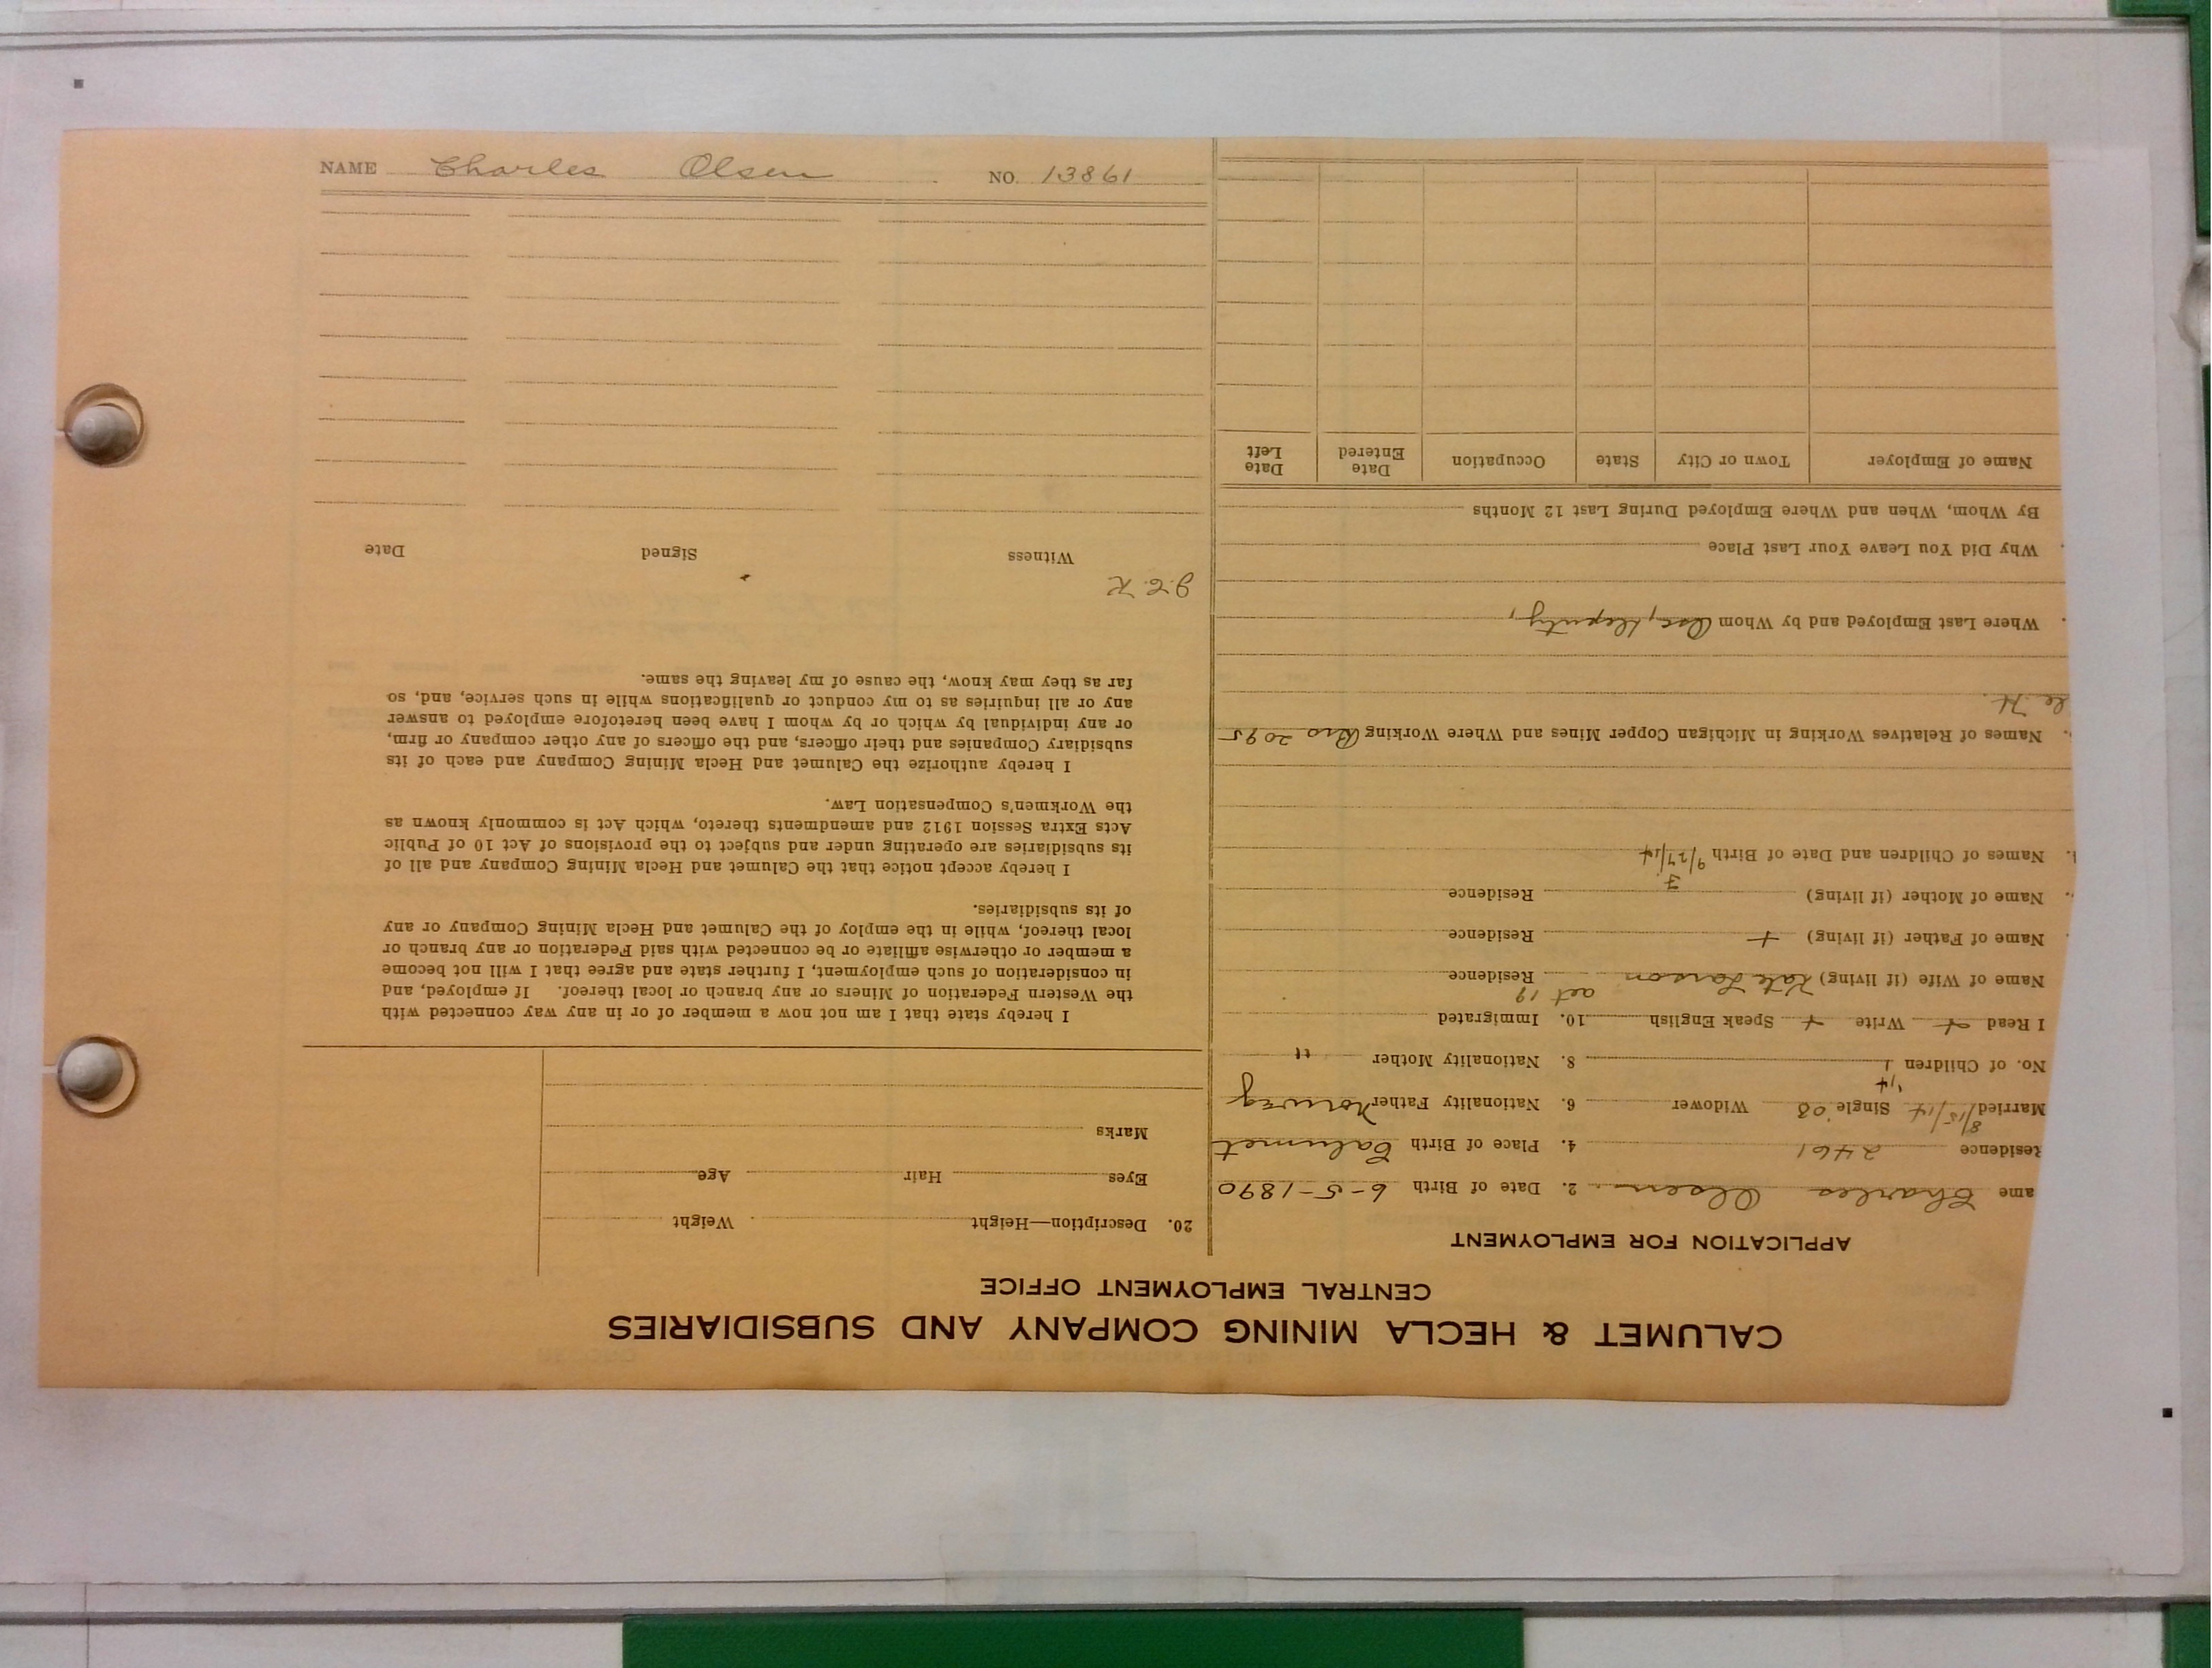 CALUMET & HECLA MINING COMPANY AND SUBSIDIARIES
CENTRAL EMPLOYMENT OFFICE
APPLICATION FOR EMPLOYMENT
ame Charles Olsen 2. Date of Birth 6-5-1890
Residence 2461 4. Place of Birth Calumet
Married 8/15/14 Single '08 Widower 6. Nationality Father Norweg
'14
No. of Children 1 8. Nationality Mother "
I Read + Write + Speak English 10. Immigrated
Name of Wife (if living) Kate Larson aet 19 Residence
Name of Father (if living) + Residence
Name of Mother (if living) Residence
F
Names of Children and Date of Birth 9/27/14
Names of Relatives Working in Michigan Copper Mines and Where Working Bro 2095
Where Last Employed and by Whom Osc, Deputy,
Why Did You Leave Your Last Place
By Whom, When and Where Employed During Last 12 Months
Name of Employer Town or City State Occupation Date Entered Date Left
20. Description—Height Weight
Eyes Hair Age
Marks
I hereby state that I am not now a member of or in any way connected with
the Western Federation of Miners or any branch or local thereof. If employed, and
in consideration of such employment, I further state and agree that I will not become
a member or otherwise affiliate or be connected with said Federation or any branch or
local thereof, while in the employ of the Calumet and Hecla Mining Company or any
of its subsidiaries.
I hereby accept notice that the Calumet and Hecla Mining Company and all of
its subsidiaries are operating under and subject to the provisions of Act 10 of Public
Acts Extra Session 1912 and amendments thereto, which Act is commonly known as
the Workmen's Compensation Law.
I hereby authorize the Calumet and Hecla Mining Company and each of its
subsidiary Companies and their officers, and the officers of any other company or firm,
or any individual by which or by whom I have been heretofore employed to answer
any or all inquiries as to my conduct or qualifications while in such service, and, so
far as they may know, the cause of my leaving the same.
J.E.K.
Witness Signed Date
NAME Charles Olsen NO. 13861